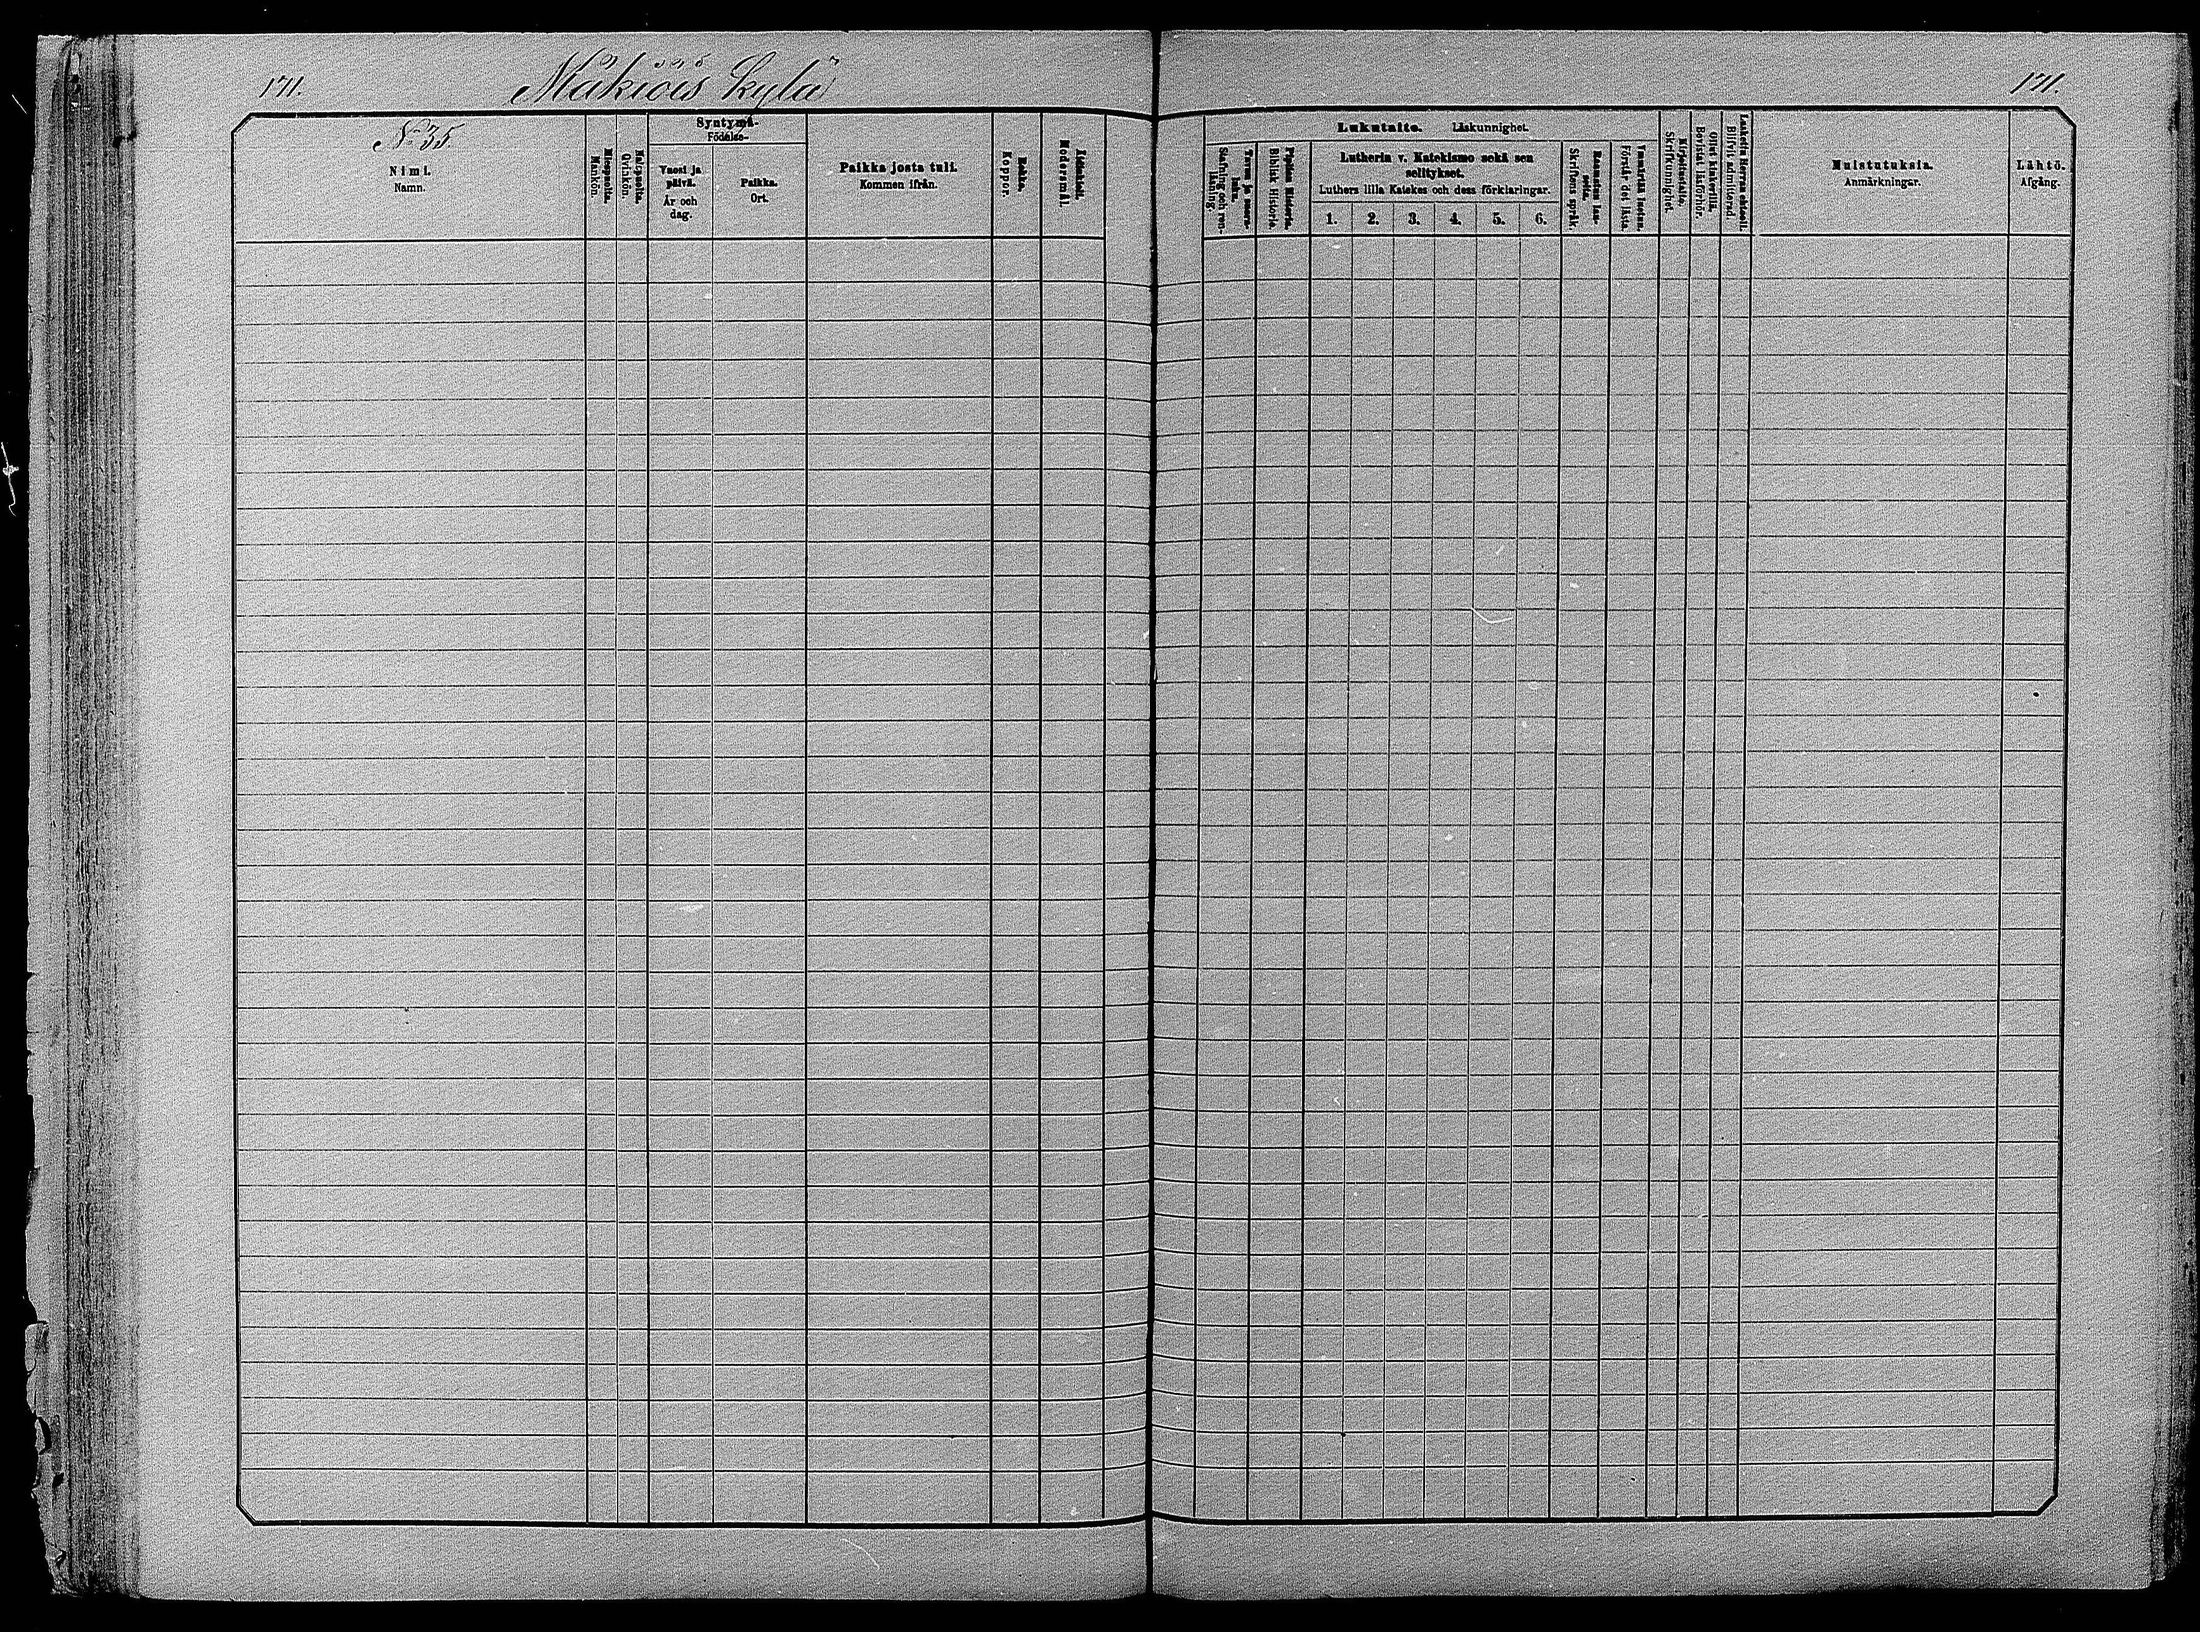 171.
Mäkiöis kylä
171.
No 35.
Nimi.
Namn.
Miespuolta.
Mankön.
Naispuolta.
Qvinkön.
Syntymä-
Födelse-
Vuosi ja
päivä.
År och
dag.
Paikka.
Ort.
Paikka josta tuli.
Kommen ifrån.
Rokko.
Koppor.
Äidinkieli.
Modersmål.
Lukutaito. Läskunnighet.
Tavuu ja suora-
luku.
Stafning och ren-
läsning.
Piplian Historia.
Biblisk Historie.
Lutherin v. Katekismo sekä sen
selitykset.
Luthers lilla Katekes och dess förklaringar.
1. 2. 3. 4. 5. 6.
Raamatun lau-
seita.
Skriftens språk.
Ymmärtää luetun.
Förstår det lästa.
Kirjoitustaito.
Skrifkunnighet.
Ollut kinkerillä.
Bevistat läsförhör.
Laskettu Herran ehtool.
Blifvit admitterad.
Muistutuksia.
Anmärkningar.
Lähtö.
Afgång.